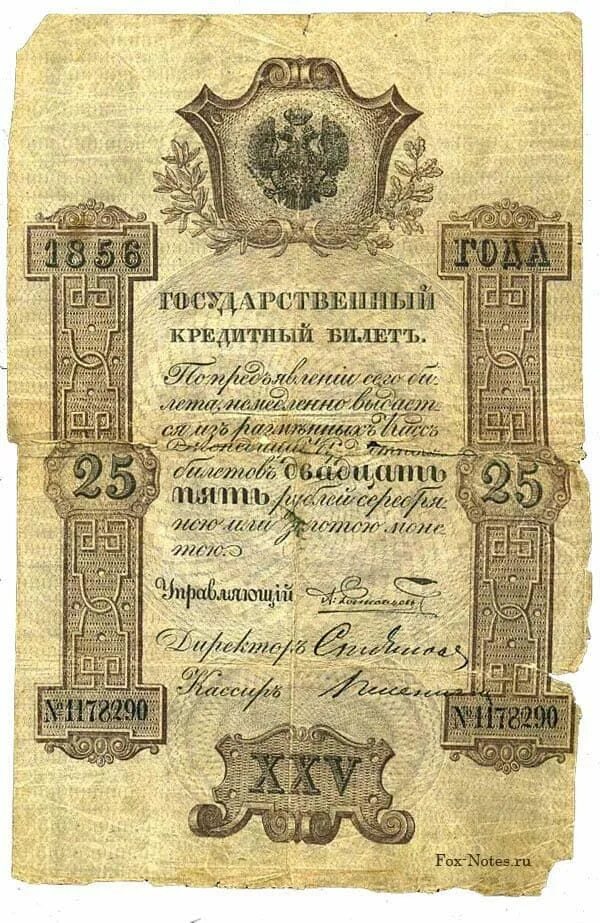 1856 ГОДА
ГОСУДАРСТВЕННЫЙ
КРЕДИТНЫЙ БИЛЕТЪ.
По предъявленіи сего би-
лета, немедленно выдает-
ся изъ размѣнныхъ кассъ
Экспедиціи Кредитныхъ
билетовъ двадцать
25 25
пять рублей серебря-
ною или золотою моне-
тою.
Управляющій
Директоръ
Кассиръ
№1178290 №1178290
XXV
Fox-Notes.ru